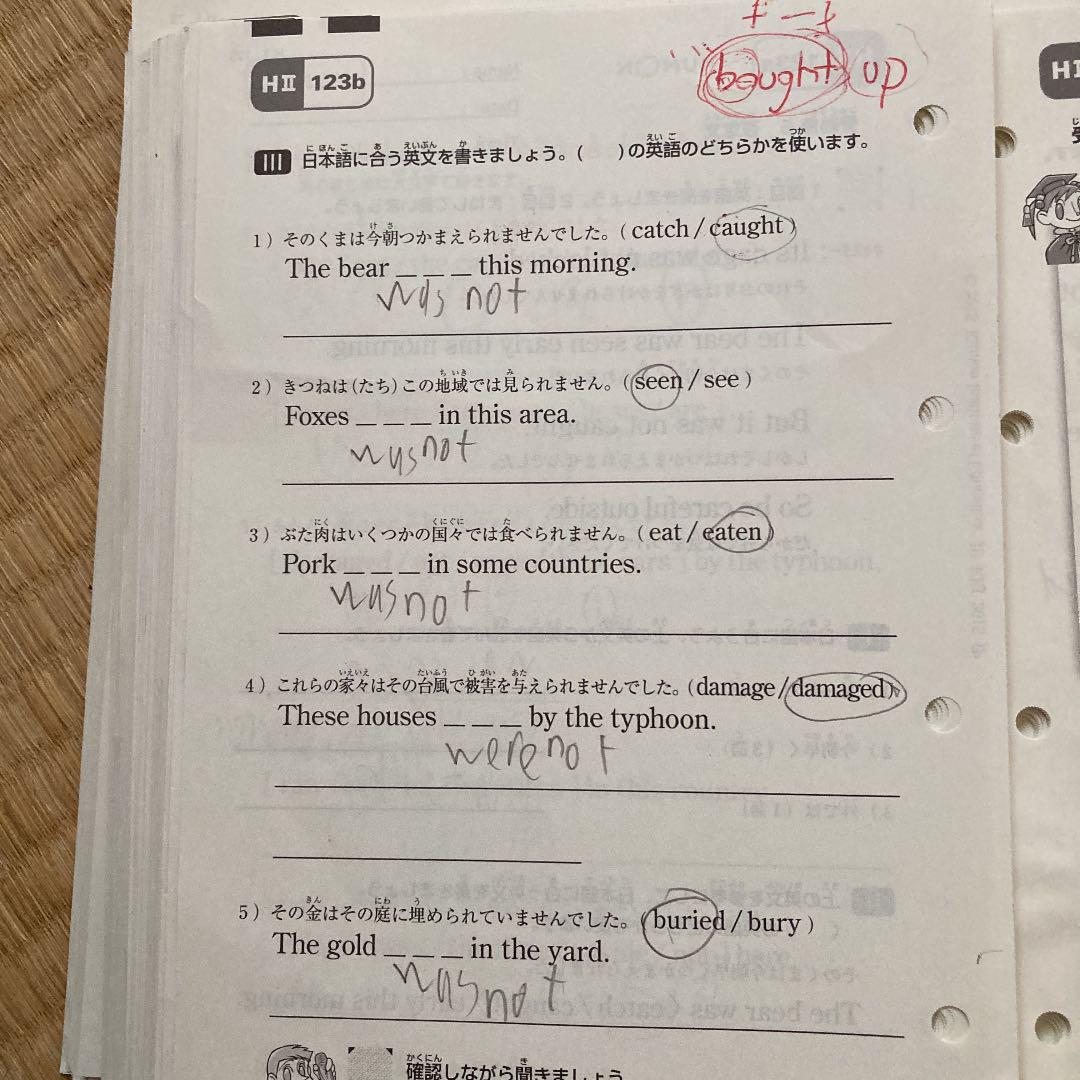 bought up
HⅡ 123b
HI
Ⅲ 日本語に合う英文を書きましょう。( )の英語のどちらかを使います。
1) そのくまは今朝つかまえられませんでした。( catch / caught )
The bear _ _ _ this morning.
was not
2) きつねは(たち)この地域では見られません。( seen / see )
Foxes _ _ _ in this area.
was not
3) ぶた肉はいくつかの国々では食べられません。( eat / eaten )
Pork _ _ _ in some countries.
was not
4) これらの家々はその台風で被害を与えられませんでした。( damage / damaged )
These houses _ _ _ by the typhoon.
were not
5) その金はその庭に埋められていませんでした。( buried / bury )
The gold _ _ _ in the yard.
was not
確認しながら聞きましょう